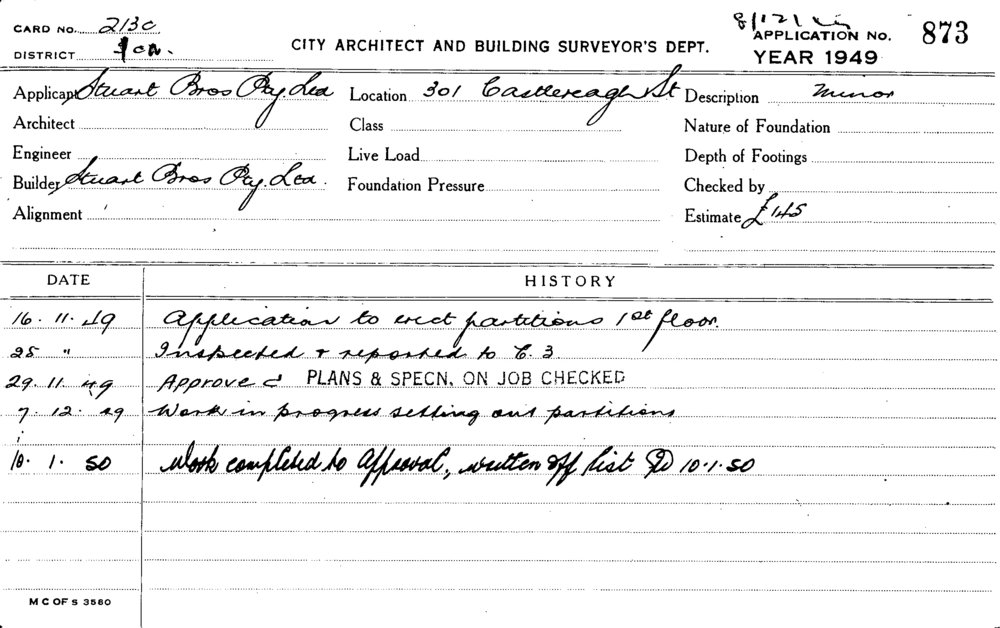 CARD NO. 213C
DISTRICT
CITY ARCHITECT AND BUILDING SURVEYOR'S DEPT.
8/12/
APPLICATION NO. 873
YEAR 1949
Applicant Stuart Bros Pty. Ltd Location 301 Castlereagh St Description Minor
Architect Class Nature of Foundation
Engineer Live Load Depth of Footings
Builder Stuart Bros Pty. Ltd. Foundation Pressure Checked by
Alignment Estimate £145
DATE HISTORY
16. 11. 49 Application to erect partitions 1st floor.
28 " Inspected & reported to C. 3
29. 11. 49 Approved PLANS & SPECN. ON JOB CHECKED
7. 12. 49 Work in progress setting out partitions
10. 1. 50 Work completed to Approval, written off list 10.1.50
M C OF S 3580